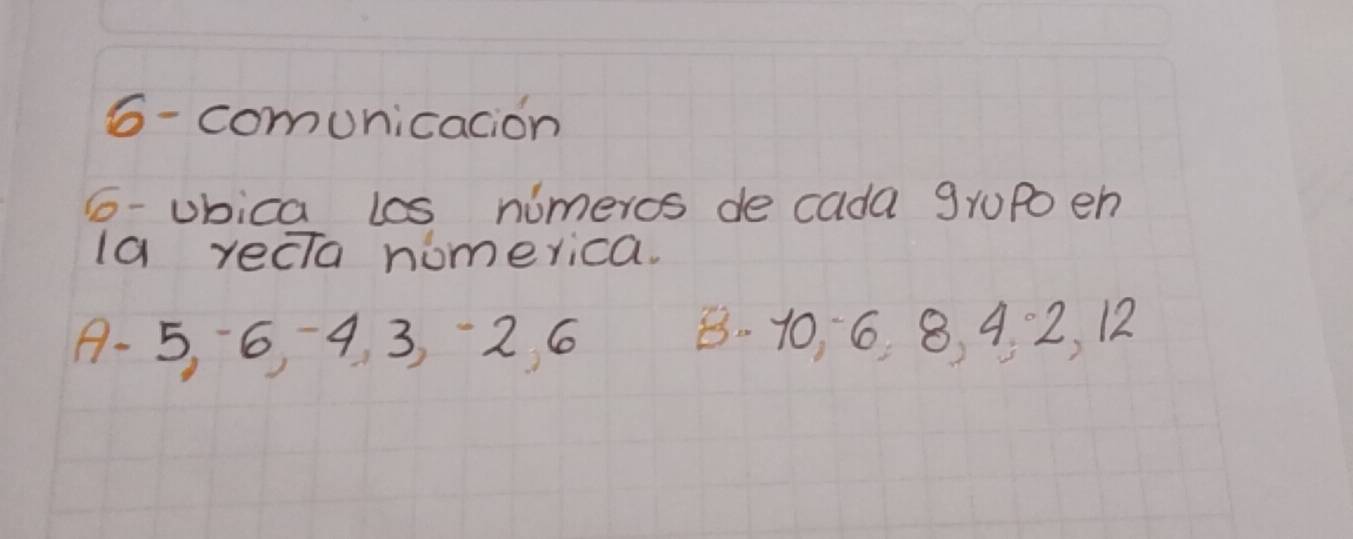 6- comunicación
6- ubica los números de cada grupo en
la recta númerica.
A- 5, -6, -4, 3, -2, 6 B- -10, -6, 8, 4, -2, 12